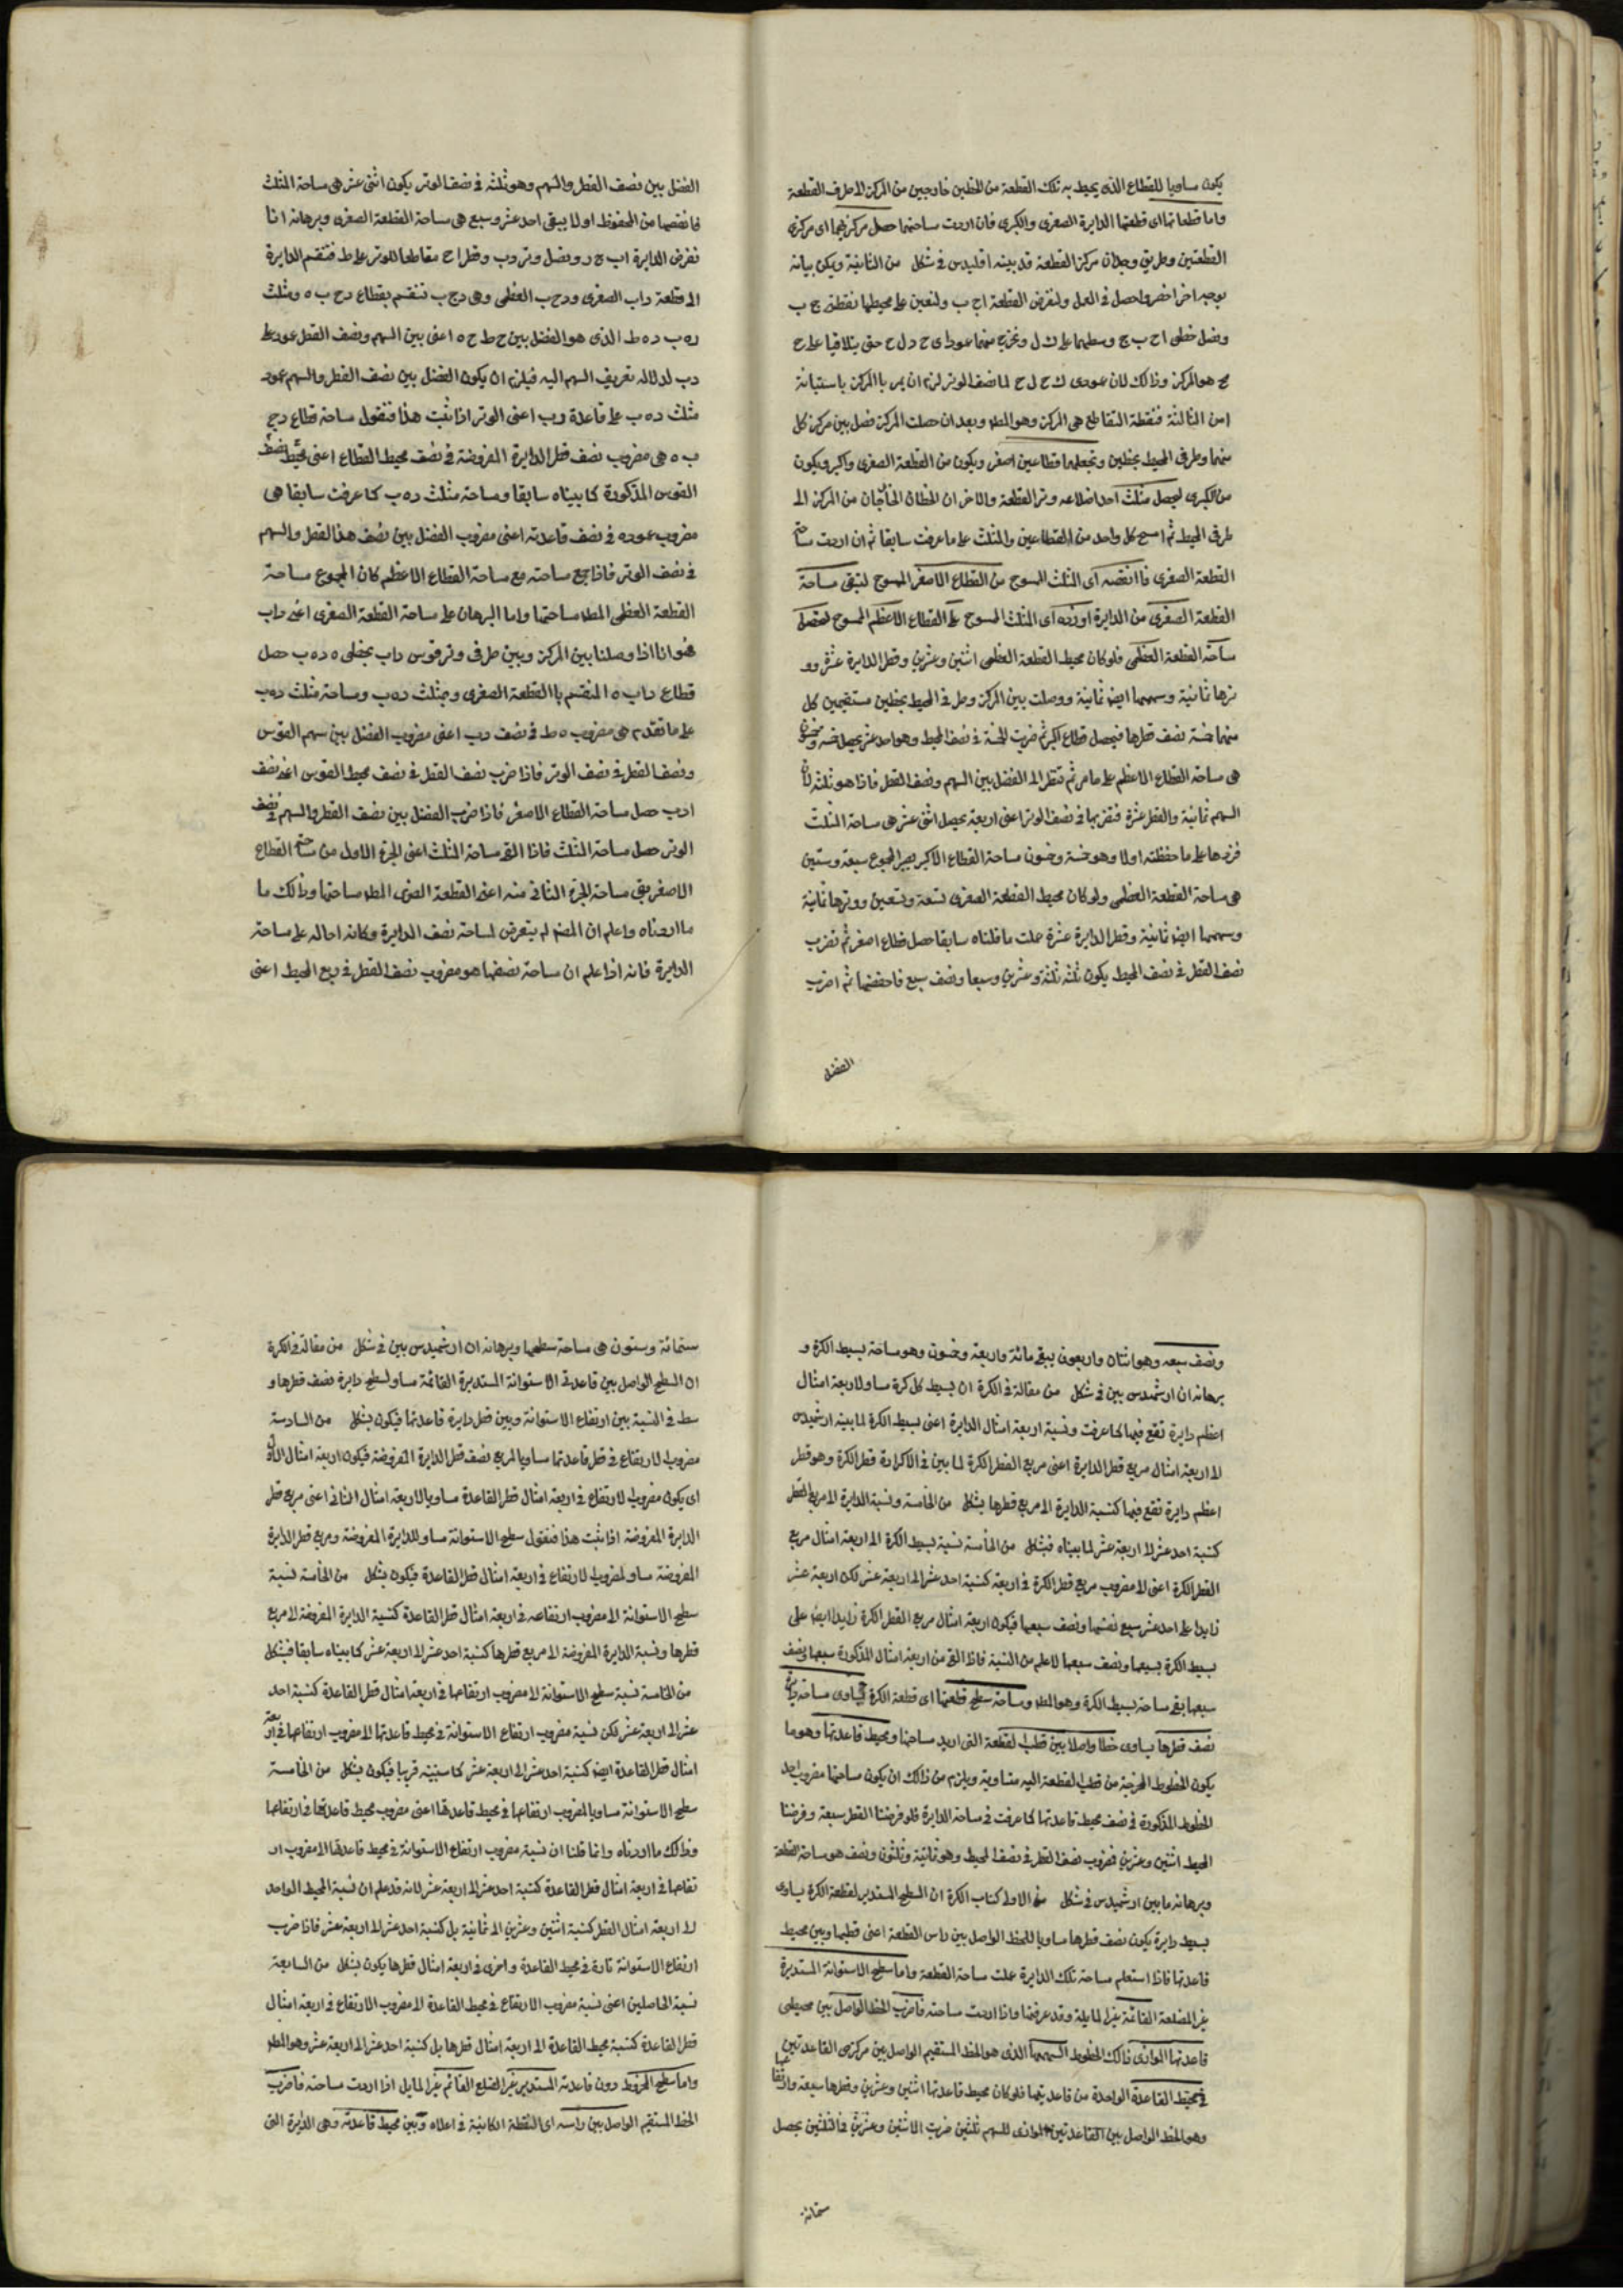 يكون مساويا للقطاع الذى يحيط به تلك القطعة من الخطين خارجين من المركز الا طرف القطعة
واما قطعاتها اى قطعتها الدايرة الصغرى والكبرى فان اردت مساحتهما حصل مركزيهما اى مركزى
القطعتين وطريق وجدان مركز القطعة قد بينه اقليدس فى شكل من الثالثة ويمكن بيانه
بوجه اخر اخصر واحصل فى العمل ولنفرض القطعة ا ح ب ولنعين على محيطها نقطتى ج ب
ونصل خطى ا ح ب ج وسطهما على ك ل ونخرج منهما عمودا ى ح د ل ح حتى يتلاقيا على ح
ح هو المركز وذالك لان عمودى ك ح ل ح لما نصف الوتر لزم ان يمر باالمركز باستبانة
ا من الثالثة فنقطة التقاطع هى المركز وهو المط وبعد ان حصلت المركز فصل بين مركز كل
منهما وطرفى المحيط بخطين وتجعلهما قطاعين اصغر ويكون من القطعة الصغرى واكبر ويكون
من الكبرى ليحصل مثلث احد اضلاعه وتر القطعة والاخر ان الخطان الخارجان من المركز الى
طرفى المحيط ثم امسح كل واحد من القطاعين والمثلث على ما عرفت سابقا ثم ان اردت مساحة
القطعة الصغرى فاانقصه اى المثلث الممسوح من القطاع الاصغر الممسوح لتبقى مساحة
القطعة الصغرى من الدايرة اوزده اى المثلث الممسوح على القطاع الاعظم الممسوح لتحصل
مساحة القطعة العظمى فلو كان محيط القطعة العظمى اثنين وعشرين وقطر الدايرة عشرة وو
ترها ثمانية وسهمها ايضا ثمانية ووصلت بين المركز وطرفى المحيط بخطين مستقيمين كل
منهما خمسة نصف قطرها فيحصل قطاع اكبر ثم ضربت الخمسة فى نصف المحيط وهو احد عشر يحصل خمسة وخمسون
هى مساحة القطاع الاعظم على ما مر ثم تنظر الى الفضل بين السهم ونصف القطر فاذا هو ثلثة لان
السهم ثمانية والقطر عشرة فنضربها فى نصف الوتر اعنى اربعة يحصل اثنى عشر هى مساحة المثلث
فزدها على ما حفظته اولا وهو خمسة وخمسون مساحة القطاع الاكبر يصير المجموع سبعة وستين
هى مساحة القطعة العظمى ولو كان محيط القطعة الصغرى تسعة وتسعين ووترها ثمانية
وسهمها ايضا ثمانية وقطر الدايرة عشرة عملت ما قلناه سابقا حصل قطاع اصغر ثم تضرب
نصف القطر فى نصف المحيط يكون ثلثة ثلثة وعشرين وسبعا ونصف سبع فاحفضها ثم اضرب
الفضل
الفضل بين نصف القطر والسهم وهو ثلثة فى نصف الوتر يكون اثنى عشر هى مساحة المثلث
فانقصها من المحفوظ اولا يبقى احد عشر وسبع هى مساحة القطعة الصغرى وبرهانه انا
نفرض الدايرة اب ج د ونصل وتر دب وقطر ا ح مقاطعا للوتر على ط فتنقسم الدايرة
الى قطعة داب الصغرى ودح ب العظمى وهى دج ب تنقسم بقطاع دح ب ه ومثلث
ده ب د ه ط الذى هو الفضل بين ح ط ح ه اعنى بين السهم ونصف القطر عمود على
دب لدلاله تعريف السهم اليه فيلزم ان يكون الفضل بين نصف القطر والسهم عمود
مثلث د ه ب على قاعدة دب اعنى الوتر اذا ثبت هذا فنقول مساحة قطاع دج
ب ه هى مضروب نصف قطر الدايرة المفروضة فى نصف محيط القطاع اعنى محيط نصف
القوس المذكورة كما بيناه سابقا ومساحة مثلث ده ب كما عرفت سابقا هى
مضروب عموده فى نصف قاعدته اعنى مضروب الفضل بين نصف هذا القطر والسهم
فى نصف الوتر فاذا جمع مساحته مع مساحة القطاع الاعظم كان المجموع مساحة
القطعة العظمى المط مساحتها واما البرهان على مساحة القطعة الصغرى اعنى داب
هو انا اذا وصلنا بين المركز وبين طرفى وتر قوس داب بخطى ه د ه ب حصل
قطاع داب ه المنقسم باالقطعة الصغرى ومثلث ده ب ومساحة مثلث ده ب
على ما تقدم هى مضروب ه ط فى نصف دب اعنى مضروب الفضل بين سهم القوس
ونصف القطر فى نصف الوتر فاذا ضرب نصف القطر فى نصف محيط القوس اعنى نصف
ادب حصل مساحة القطاع الاصغر فاذا ضرب الفضل بين نصف القطر والسهم فى نصف
الوتر حصل مساحة المثلث فاذا القى مساحة المثلث اعنى الجزء الاول من مساحة القطاع
الاصغر بقى مساحة الجزء الثانى منه اعنى القطعة الصغرى المط مساحتها وذالك ما
مااردناه واعلم ان المصنف لم يتعرض لمساحة نصف الدايرة وكانه احاله على مساحة
الدايرة فانه اذا علم ان مساحة نصفها هو مضروب نصف القطر فى ربع المحيط اعنى
ونصف سبعه وهو اثنتان واربعون يبقى مائة واربعة وخمسون وهو مساحة بسيط الكرة و
برهانه ان ارشميدس بين فى شكل من مقالة فى الكرة ان بسيط كل كرة مساو لاربعة امثال
اعظم دايرة تقع فيها كما عرفت ونسبة اربعة امثال الدايرة اعنى بسيط الكرة لما بينه ارشميدس
الى اربعة امثال مربع قطر الدايرة اعنى مربع القطر الكرة لما بين فى الاكر ان قطر الكرة وهو قطر
اعظم دايرة تقع فيها كنسبة الدايرة الى مربع قطرها بشكل من الخامسة ونسبة الدايرة الا مربع القطر
كنسبة احد عشر الى اربعة عشر لما بيناه فبشكل من الخامسة نسبة بسيط الكرة الى اربعة امثال مربع
القطر الكرة اعنى الا مضروب مربع قطر الكرة فى اربعة كنسبة احد عشر الى اربعة عشر لكن اربعة عشر
زايد على احد عشر سبع نفسها ونصف سبعها فيكون اربعة امثال مربع القطر الكرة زايدا ايضا على
بسيط الكرة بسبعها ونصف سبعها لما علم من النسبة فاذا القى من اربعة امثال المذكورة سبعها ونصف
سبعها بقى مساحة بسيط الكرة وهو المط ومساحة سطح قطعتها اى قطعة الكرة يساوى مساحة دايرة
نصف قطرها يساوى خطا واصلا بين قطب القطعة التى اريد مساحتها ومحيط قاعدتها وهو ما
يكون الخطوط المخرجة من قطب القطعة اليه متساوية ويلزم من ذالك ان يكون مساحتها مضروب احد
الخطوط المذكورة فى نصف محيط قاعدتها كما عرفت فى مساحة الدايرة فلو فرضنا القطر سبعة وفرضنا
المحيط اثنين وعشرين فضروب نصف القطر فى نصف المحيط وهو ثمانية وثلثون ونصف هو مساحة القطعة
وبرهانه ما بين ارشميدس فى شكل من الاولى كتاب الكرة ان السطح المستدير لقطعة الكرة يساوى
بسيط دايرة يكون نصف قطرها مساويا للخط الواصل بين راس القطعة اعنى قطبها وبين محيط
قاعدتها فاذا استعلم مساحة تلك الدايرة علمت مساحة القطعة واما سطح الاستوانة المستديرة
غير المضلعة القائمة غير المايلة وقد عرفتها واذا اردت مساحته فاضرب الخط الواصل بين محيطى
قاعدتها الموازى ذالك الخطوط السهمها الذى هو الخط المستقيم الواصل بين مركزى القاعدتين
فى محيط القاعدة الواحدة من قاعدتيها فلو كان محيط قاعدتها اثنين وعشرين وقطرها سبعة وارتفاعها
وهو الخط الواصل بين القاعدتين الموازى للسهم ثلثين ضربت الاثنين وعشرين فى الثلثين يحصل
ستمائة
ستمائة وستون هى مساحة سطحها وبرهانه ان ارشميدس بين فى شكل من مقالة فى الكرة
ان السطح الواصل بين قاعدتى الاستوانة المستديرة القائمة مساو لسطح دايرة نصف قطرها و
سط فى النسبة بين ارتفاع الاستوانة وبين قطر دايرة قاعدتها فيكون بشكل من السادسة
مضروب الارتفاع فى قطر قاعدتها مساويا لمربع نصف قطر الدايرة المفروضة فيكون اربعة امثال الاول
اى يكون مضروب الارتفاع فى اربعة امثال قطر القاعدة مساويا لاربعة امثال الثانى اعنى مربع قطر
الدايرة المفروضة اذا ثبت هذا فنقول سطح الاستوانة مساو للدايرة المفروضة ومربع قطر الدايرة
المفروضة مساو لمضروب الارتفاع فى اربعة امثال قطر القاعدة فيكون بشكل من الخامسة نسبة
سطح الاستوانة الا مضروب ارتفاعه فى اربعة امثال قطر القاعدة كنسبة الدايرة المفروضة الا مربع
قطرها ونسبة الدايرة المفروضة الا مربع قطرها كنسبة احد عشر الى اربعة عشر كما بيناه سابقا فبشكل
من الخامسة نسبة سطح الاستوانة الا مضروب ارتفاعها فى اربعة امثال قطر القاعدة كنسبة احد
عشر الى اربعة عشر لكن نسبة مضروب ارتفاع الاستوانة فى محيط قاعدتها الى مضروب ارتفاعها فى اربعة
امثال قطر القاعدة ايضا كنسبة احد عشر الى اربعة عشر كما سنبينه قريبا فيكون بشكل من الخامسة
سطح الاستوانة مساويا لمضروب ارتفاعها فى محيط قاعدتها اعنى مضروب محيط قاعدتها فى ارتفاعها
وذالك مااردناه وانما قلنا ان نسبة مضروب ارتفاع الاستوانة فى محيط قاعدتها الا مضروب ار
تفاعها فى اربعة امثال قطر القاعدة كنسبة احد عشر الى اربعة عشر لانه قد علم ان نسبة المحيط الواحد
الى اربعة امثال القطر كنسبة اثنين وعشرين الى ثمانية بل كنسبة احد عشر الى اربعة عشر فاذا ضرب
ارتفاع الاستوانة تارة فى محيط القاعدة واخرى فى اربعة امثال قطرها يكون بشكل من السابعة
نسبة الحاصلين اعنى نسبة مضروب الارتفاع فى محيط القاعدة الا مضروب الارتفاع فى اربعة امثال
قطر القاعدة كنسبة محيط القاعدة الى اربعة امثال قطرها بل كنسبة احد عشر الى اربعة عشر وهو المط
واما سطح المخروط دون قاعدته المستدير غير المضلع القائم غير المايل اذا اردت مساحته فاضرب
الخط المستقيم الواصل بين راسه اى النقطة الكاينة فى اعلاه وبين محيط قاعدته وهى الدايرة التى